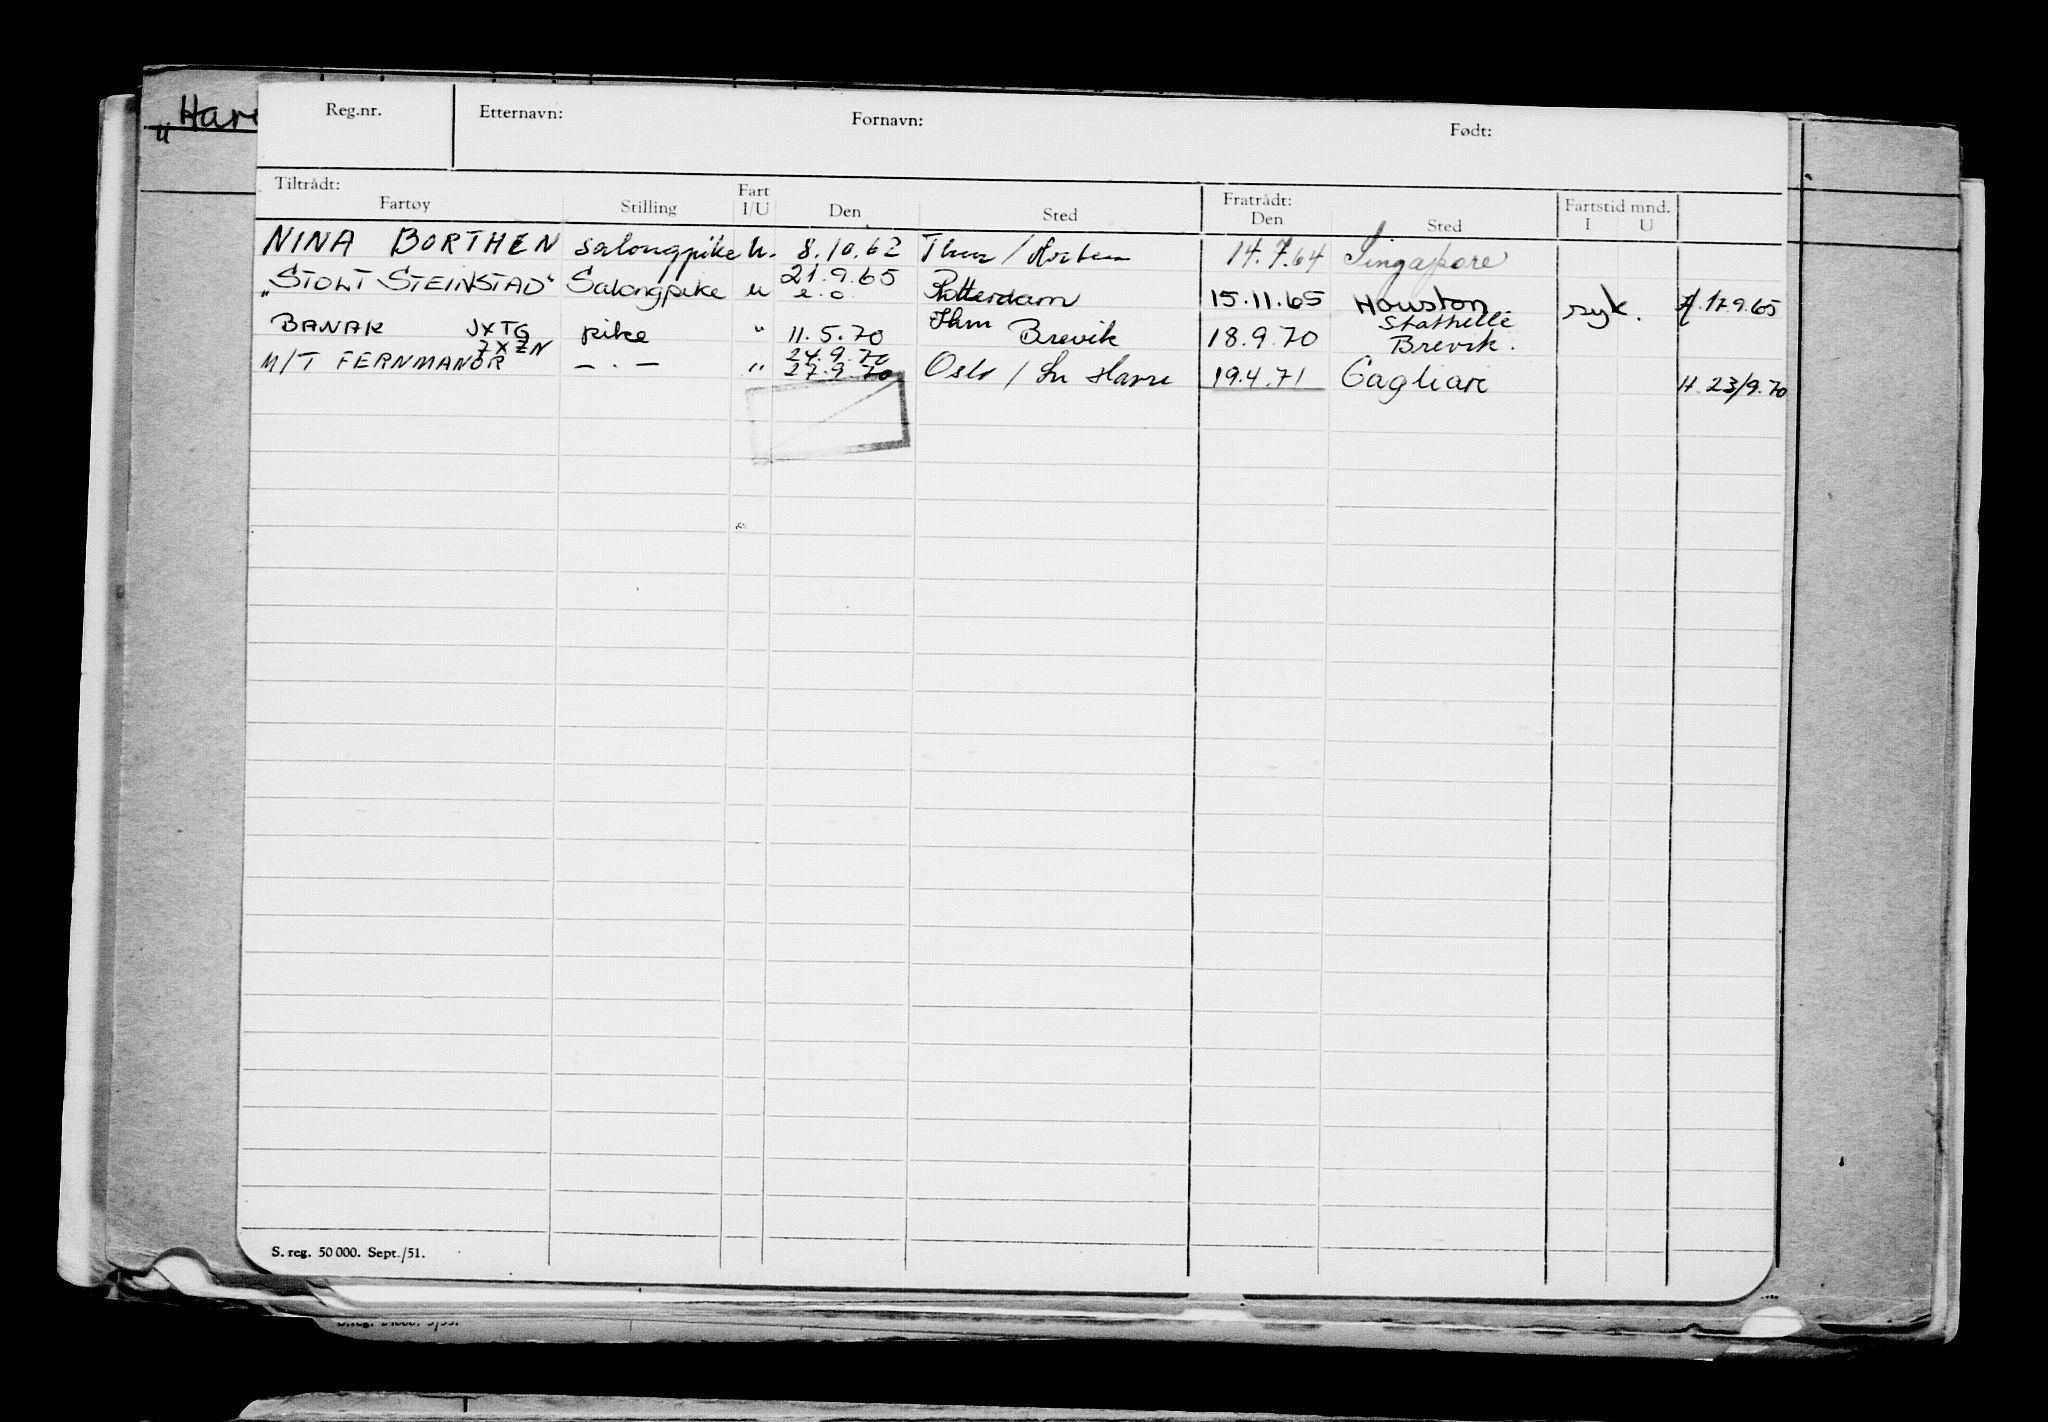 „Har
Reg.nr. Etternavn: Fornavn: Født:
Tiltrådt: Fratrådt:
Fartøy Stilling Fart I/U Den Sted Den Sted Fartstid mnd. I U
NINA BORTHEN salongpike u. 8.10.62 14.7.64 Singapore
„STOLT STEINSTAD“ Salongpike u 21.9.65 e.o. Rotterdam 15.11.65 Houston syk. 17.9.65
BANAK JXTG pike " 11.5.70 Brevik 18.9.70 Stathelle Brevik.
M/T FERNMANOR JXZN — . — " 24.9.70 27.9.70 Oslo / 19.4.71 Cagliari H. 23/9.70
S. reg. 50 000. Sept./51.